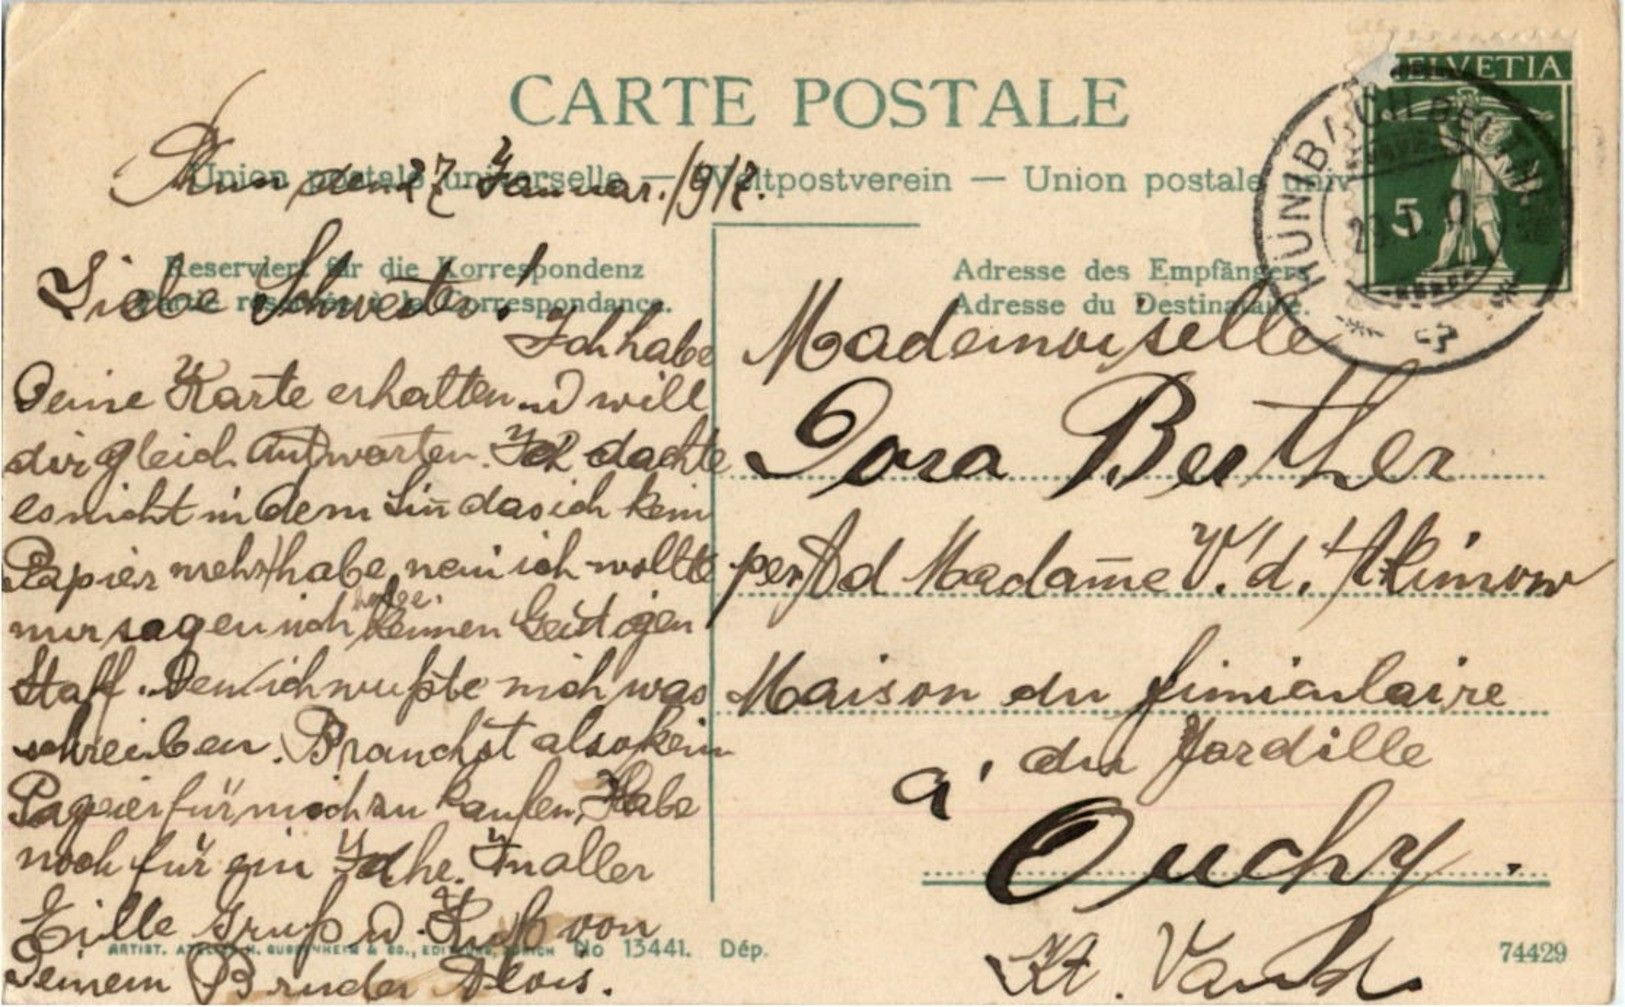 CARTE POSTALE
Union postale universelle — Weltpostverein — Union postale univ
HELVETIA
5
HÜNIBACH
Thun den 27 Januar. 1912.
Reserviert für die Korrespondenz
Partie réservée à la Correspondance.
Liebe Schwester!
Ich habe
Deine Karte erhalten u will
dir gleich Antworten. Ich dachte
es nicht in dem Sin̄ das ich kein
Papier mehr habe, nein ich wollte
nur sagen ich habe keinen Geistigen
Stoff. Den ich wußte nich was
schreiben. Brauchst also kein
Papier für mich zu kaufen, Habe
noch für ein Jahr. In aller
Eille Gruß u. Kuß von
Deinem Bruder Alois.
Adresse des Empfängers.
Adresse du Destinataire.
Mademoiselle
Dora Berther
per Ad Madam̄e V. d.
Maison du finiculaire
du Jordille
a'
Ouchy.
Kt. Vaud.
ARTIST. ATELIER H. GUGGENHEIM & CO., EDITEURS, ZÜRICH No 13441. Dép.
74429